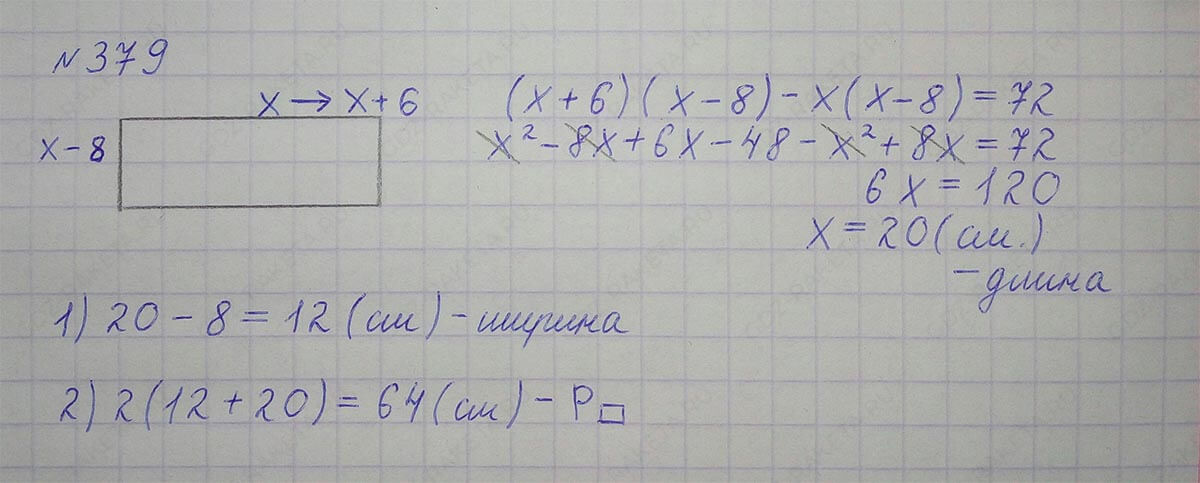 №379
x → x+6
x-8
(x+6)(x-8)-x(x-8)=72
x²-8x+6x-48-x²+8x=72
6x=120
x=20(см.)
-длина
1) 20-8=12(см)-ширина
2) 2(12+20)=64(см)-P▭